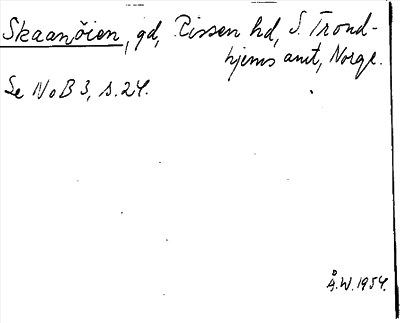 Skaanöien, gd, Rissen hd, S. Trond-
hjems amt, Norge.
Se NoB 3, s. 24.
Å.W. 1954.